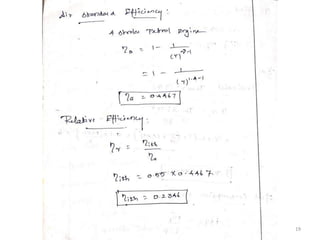 Air Standard Efficiency :
4 stroke Petrol engine
ηa = 1 - 1/(r)^γ-1
= 1 - 1/(r)^1.4-1
ηa = 0.4467
Relative Efficiency :
ηr = ηith/ηa
ηith = 0.55 x 0.4467
ηith = 0.2346
19